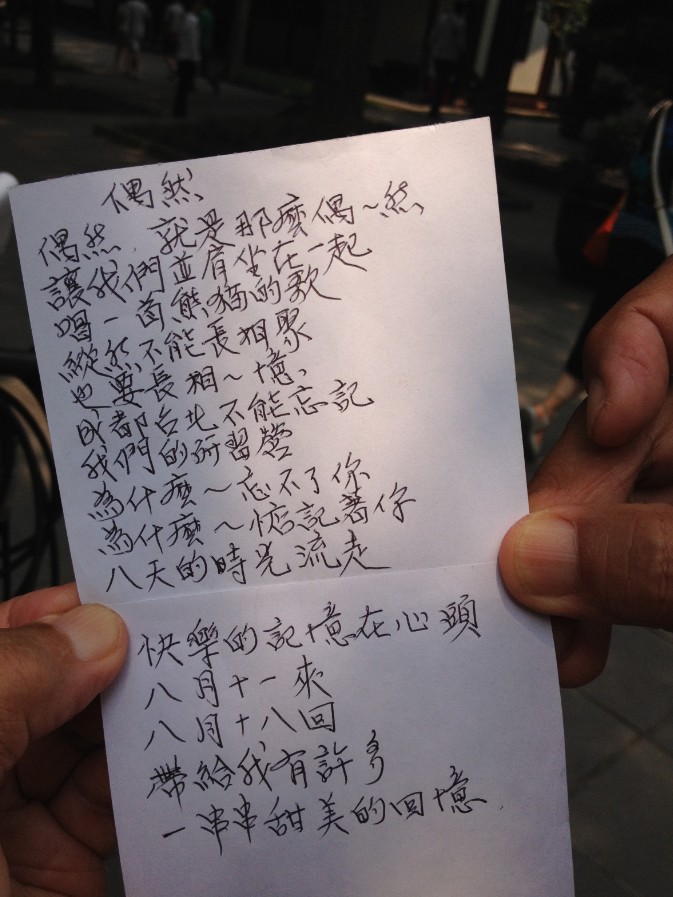 偶然
偶然、就是那麼偶~然
讓我們並肩坐在一起
唱一首熊貓的歌
縱然不能長相聚
也要長相~憶、
成都台北不能忘記
我們的研習營
為什麼~忘不了你
為什麼~惦記著你
八天的時光流走
快樂的記憶在心頭
八月十一來
八月十八回
帶給我有許多
一串串甜美的回憶.